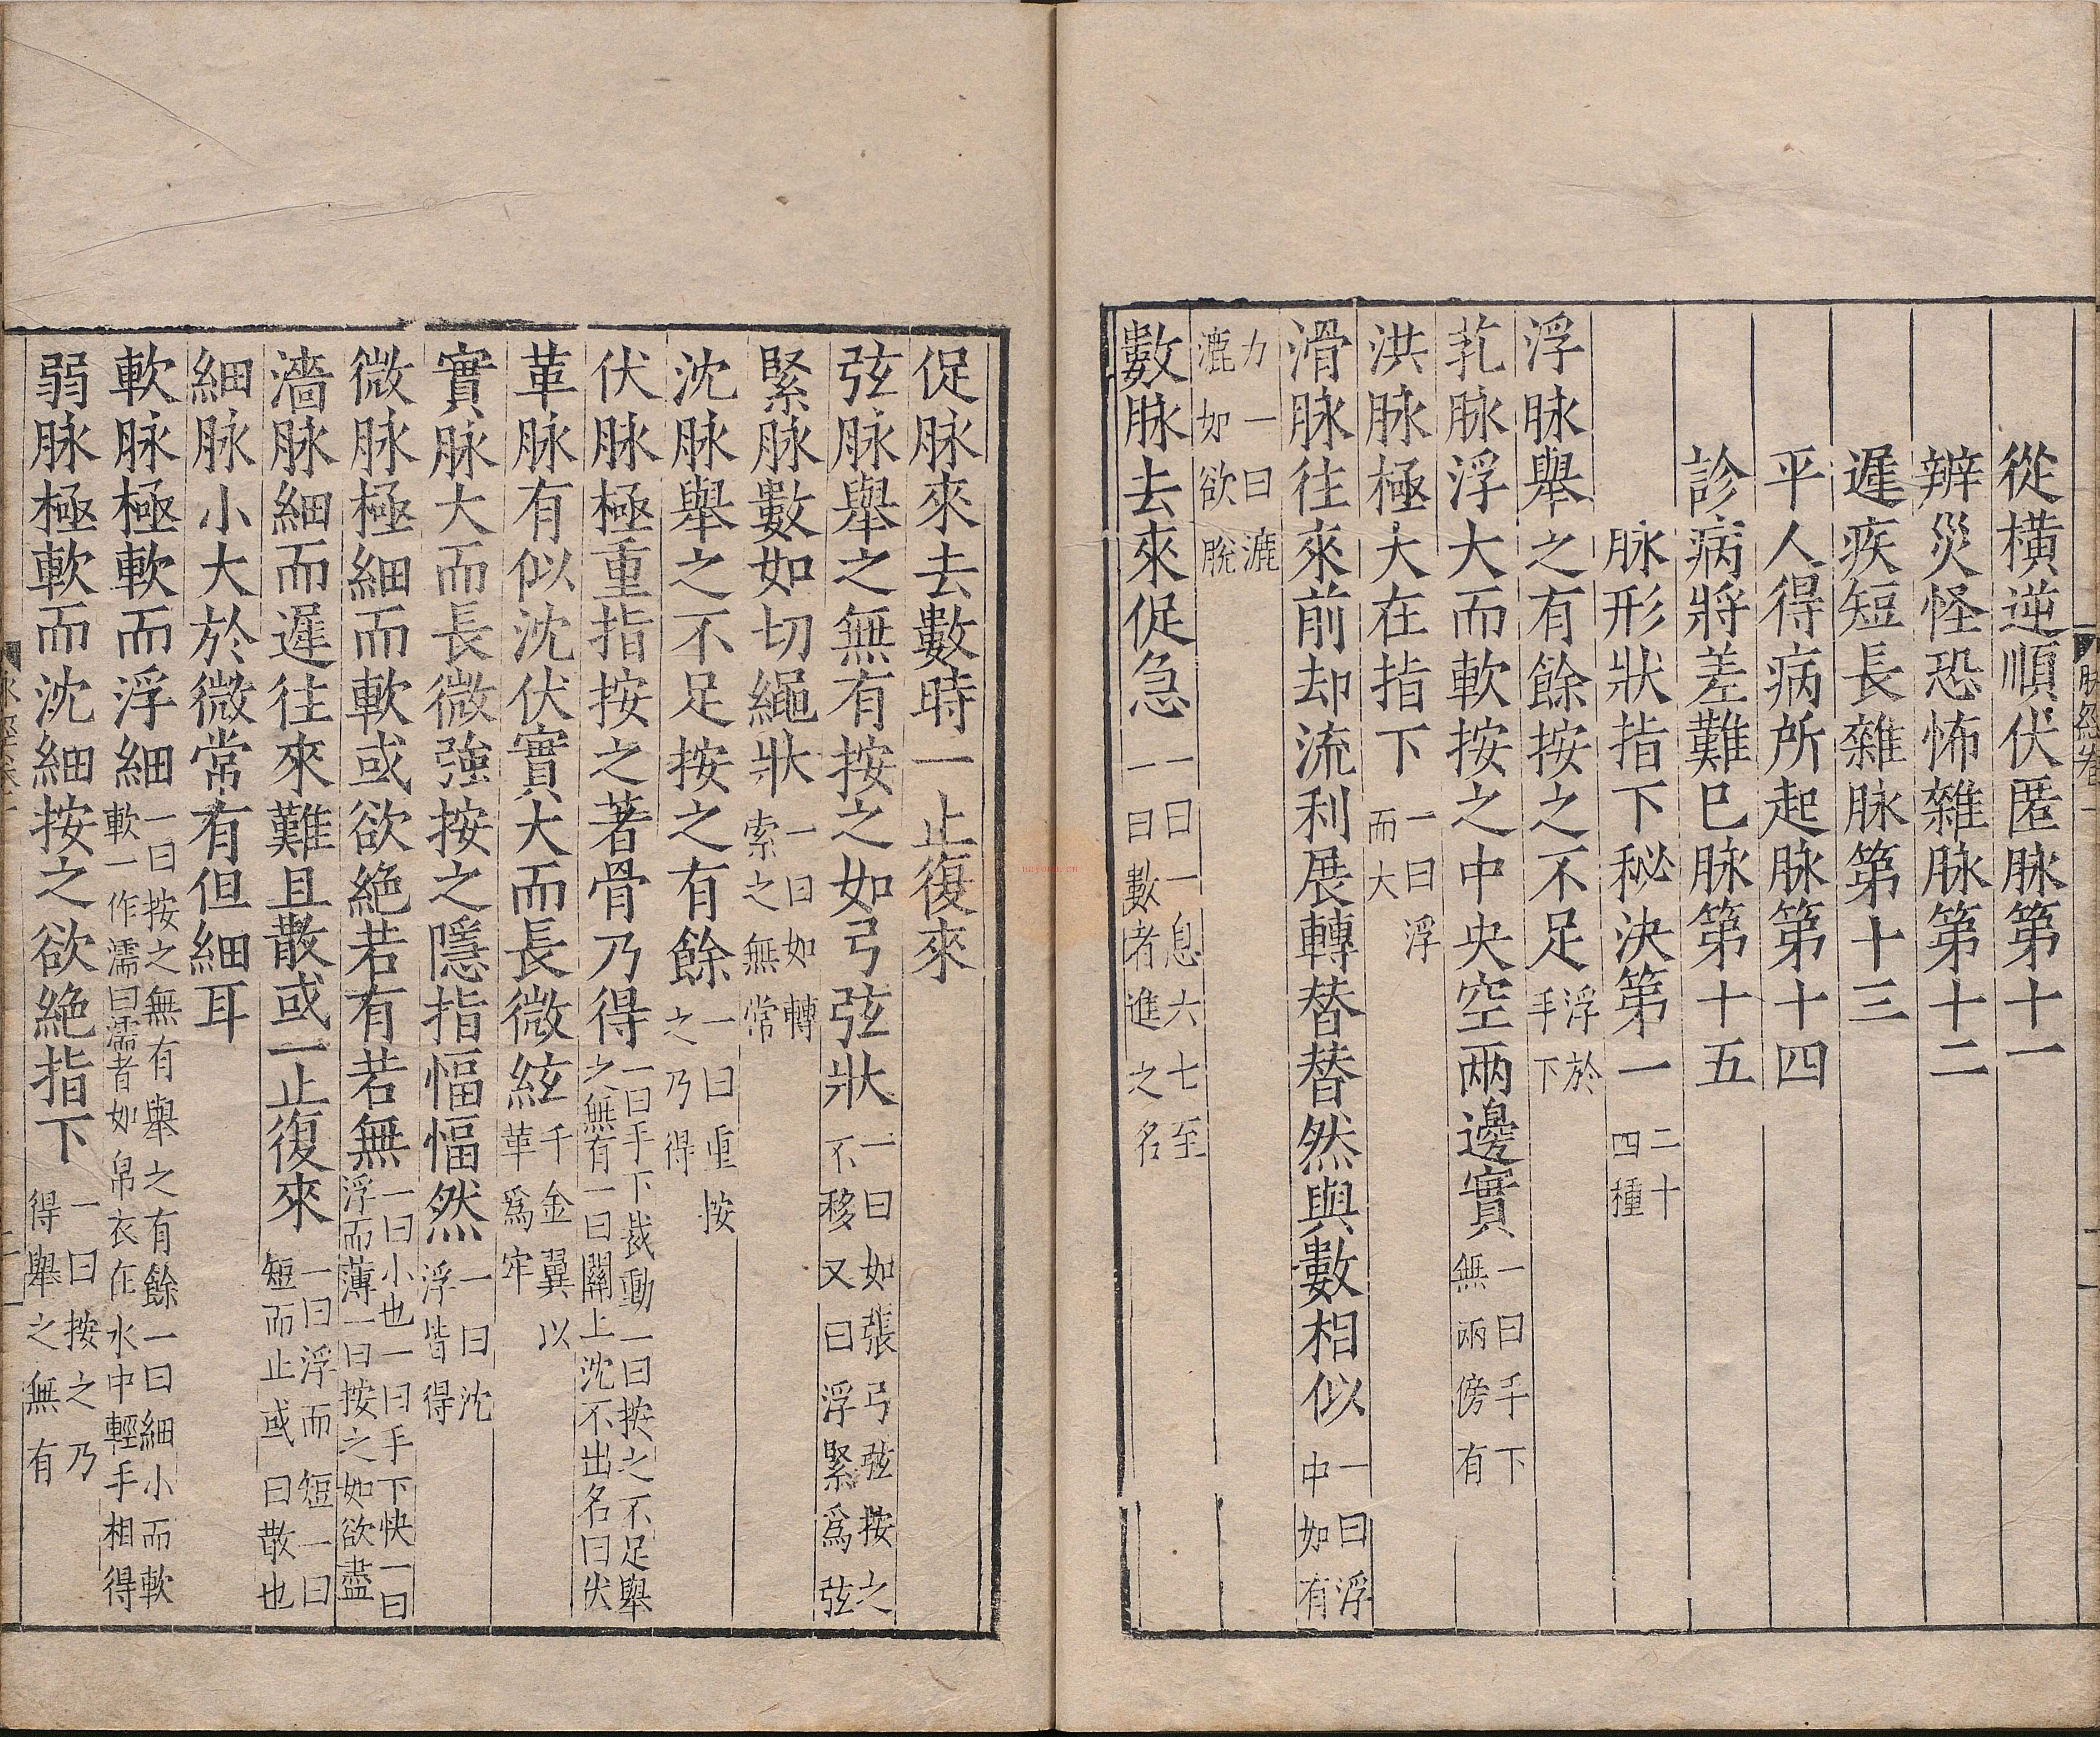 從橫逆順伏匿脉第十一
辨災怪恐怖雜脉第十二
遲疾短長雜脉第十三
平人得病所起脉第十四
診病將差難巳脉第十五
脉形狀指下秘決第一二十四種
浮脉舉之有餘按之不足浮於手下
芤脉浮大而軟按之中央空兩邊實一曰手下無兩傍有
洪脉極大在指下一曰浮而大
滑脉往來前却流利展轉替替然與數相似一曰浮中如有
力一曰漉漉如欲脫
數脉去來促急一曰一息六七至一曰數者進之名
促脉來去數時一止復來
弦脉舉之無有按之如弓弦狀一曰如張弓弦按之不移又曰浮緊爲弦
緊脉數如切繩狀一曰如轉索之無常
沈脉舉之不足按之有餘一曰重按之乃得
伏脉極重指按之著骨乃得一曰手下裁動一曰按之不足舉之無有一曰關上沈不出名曰伏
革脉有似沈伏實大而長微絃千金翼以革爲牢
實脉大而長微強按之隱指愊愊然一曰沈浮皆得
微脉極細而軟或欲絕若有若無一曰小也一曰手下快一曰浮而薄一曰按之如欲盡
濇脉細而遲往來難且散或一止復來一曰浮而短一曰短而止或曰散也
細脉小大於微常有但細耳
軟脉極軟而浮細一曰按之無有舉之有餘一曰細小而軟軟一作濡曰濡者如帛衣在水中輕手相得
弱脉極軟而沈細按之欲絕指下一曰按之乃得舉之無有
脉經卷一